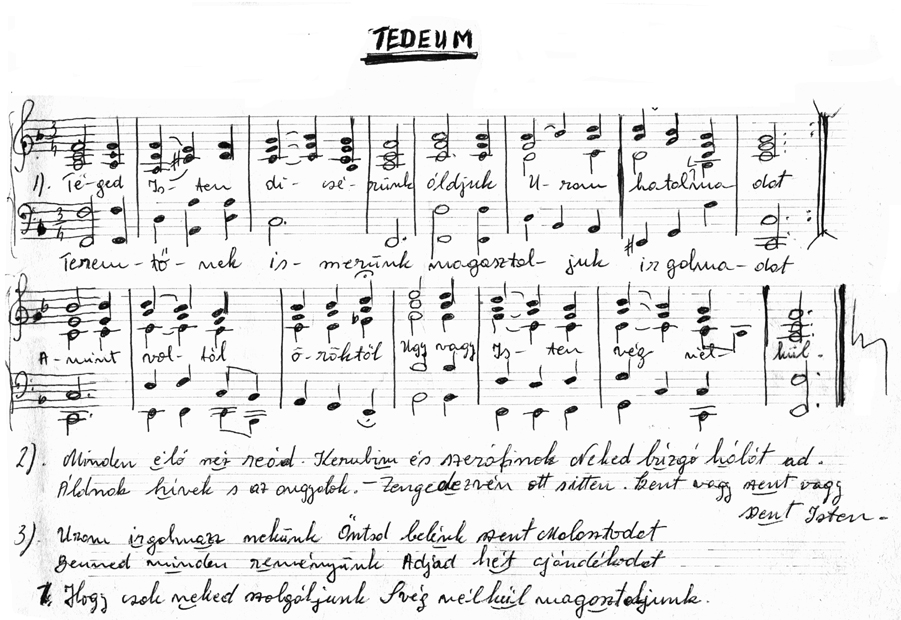 TEDEUM
1). Té-ged Is-ten di-csé-rünk áldjuk U-ram hatalma dat
Terem-tő-nek is-merünk magasztal-juk irgalma-dat
A-mint vol-tál ö-röktöl Ugy vagy Is-ten vég nél-kül.
2). Minden élő néz reád. Kerubim és szeráfinak Neked buzgó hálát ad.
Áldnak hívek s az angyalok. - Zengedezvén ott Szent vagy szent vagy
szent Isten -
3) Uram irgalmazz nekünk Öntsd belénk szent Malasztodat
Benned minden reményünk Adjad hét ajándékodat
Hogy csak neked szolgáljunk S vég nélkül magasztaljunk.